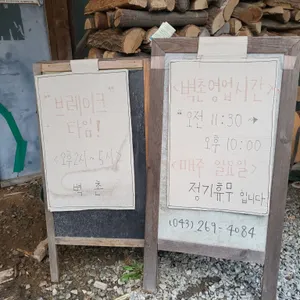 "브레이크"
타임!
<오후2시~5시>
벽촌
<벽촌영업시간>
"오전 11:30 →
오후 10:00
<매주 일요일>
정기휴무 합니다
(043) 269-4084